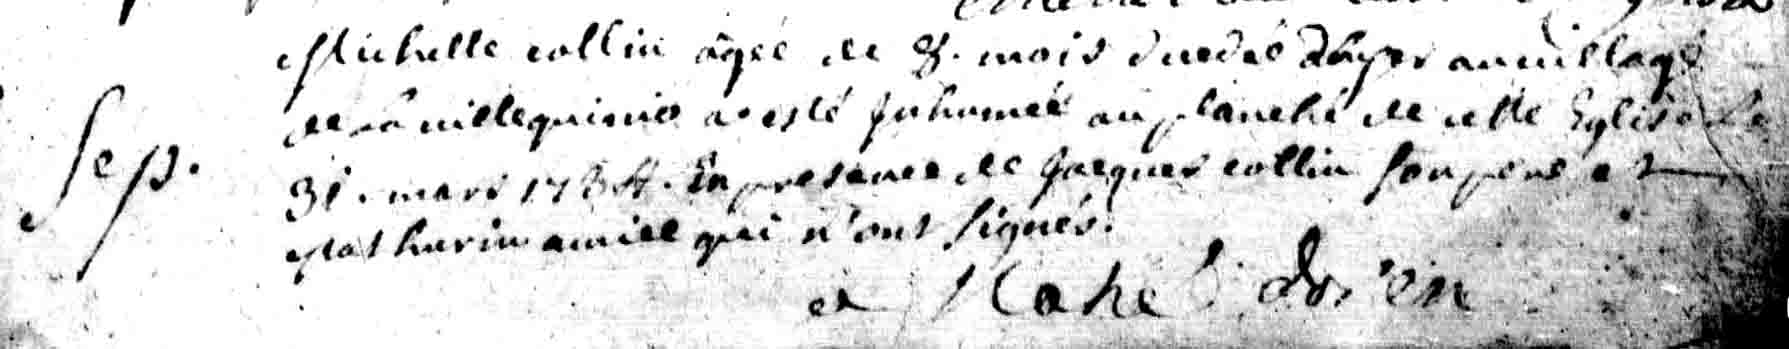 Michelle collin agée de 8. mois decedée d'hyer au village
de la villequinio a esté Inhumée au planché de cette Eglise Le
Sep.
31. mars 1734. En presence de Jacques collin son pere et
Mathurin amice qui n'ont signés.